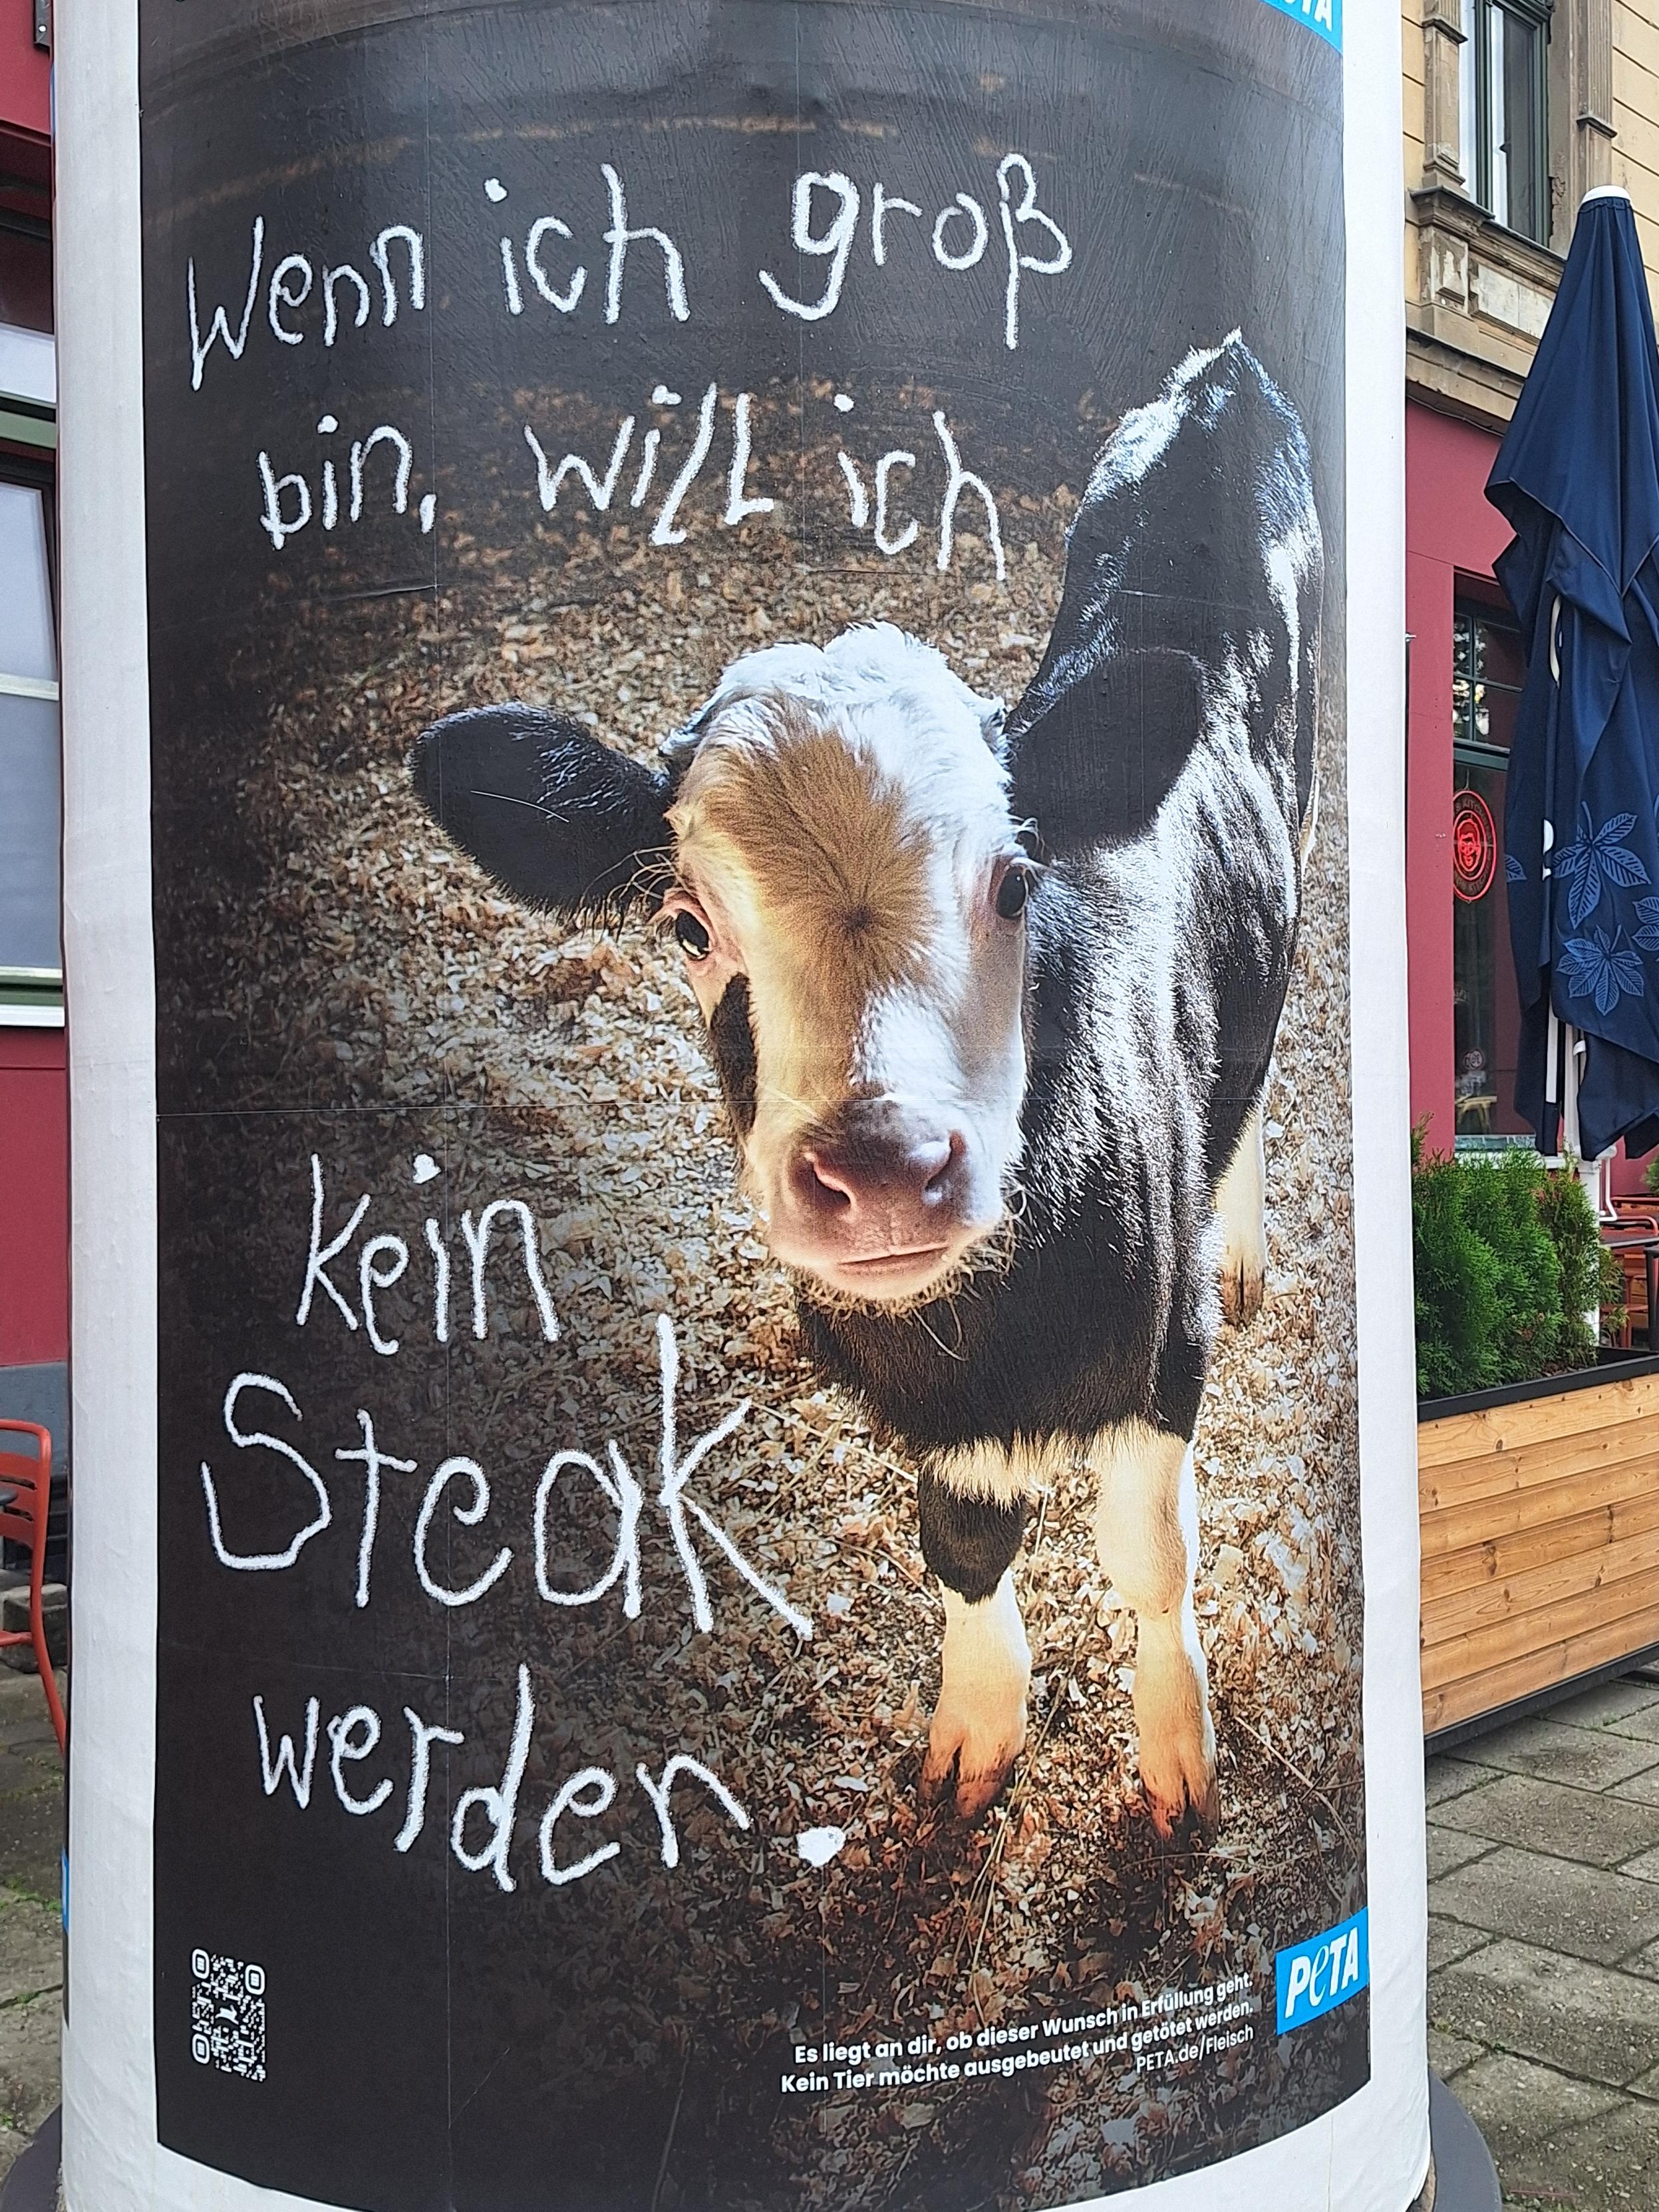 Wenn ich groß
bin, will ich
kein
Steak
werden.
Es liegt an dir, ob dieser Wunsch in Erfüllung geht.
Kein Tier möchte ausgebeutet und getötet werden.
PETA.de/Fleisch
PeTA